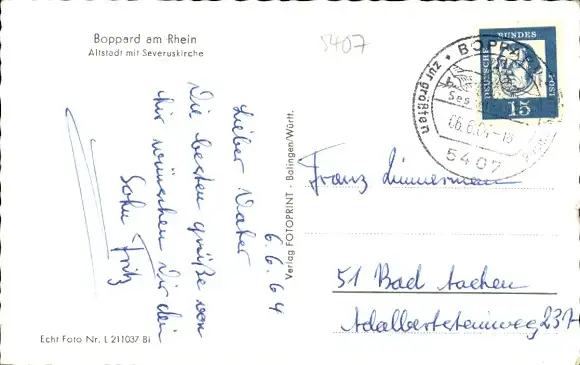 Boppard am Rhein
Altstadt mit Severuskirche
5407
6.6.64
Lieber Vater
Die besten grüße von
hir wünschen dir dein
Sohn Fritz
Echt Foto Nr. L 211037 Bi
Verlag FOTOPRINT - Balingen/Württ.
DEUTSCHE BUNDES
15
BOPPARD
zur größten
06.6.64-18
5407
Franz Zimmerman
51 Bad Aachen
Adalbertsteinweg 237